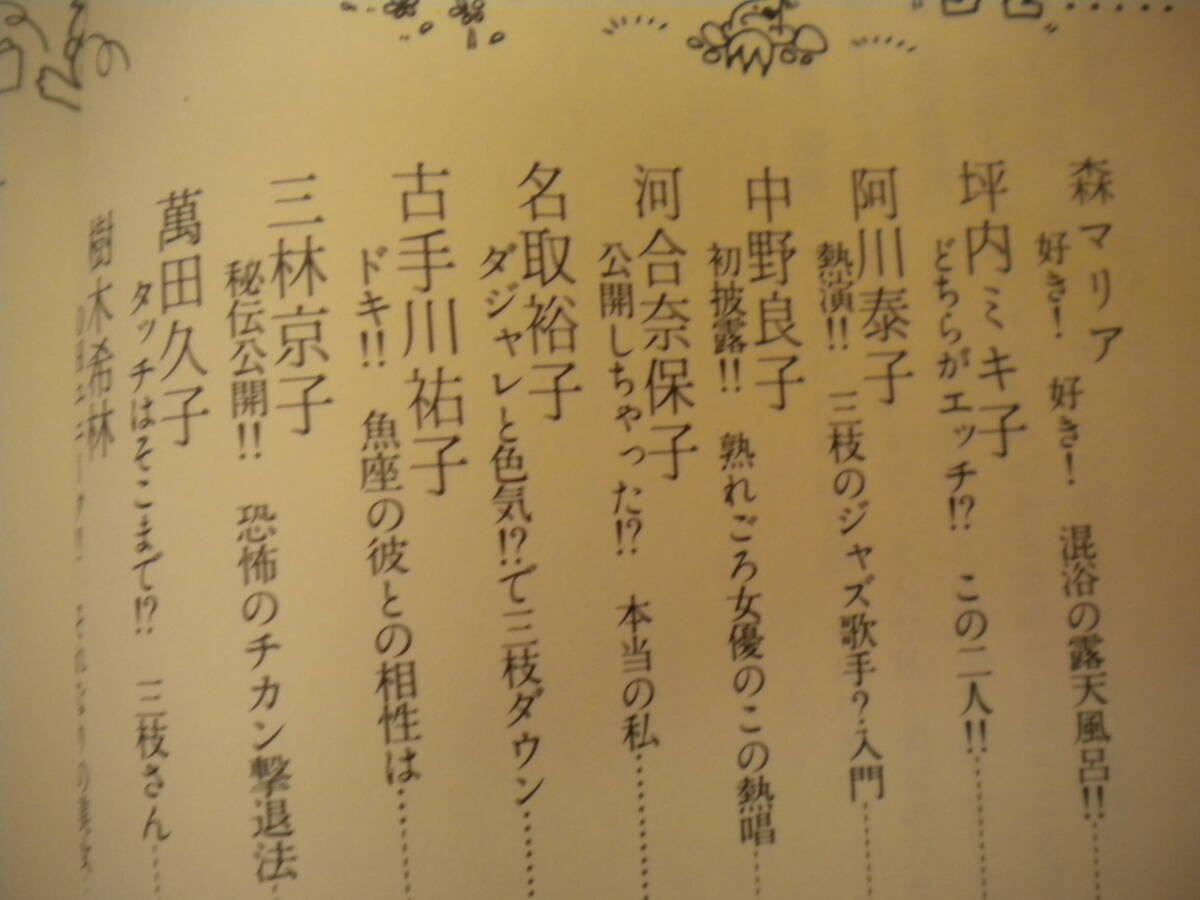 森マリア
好き！　好き！　混浴の露天風呂!!……
坪内ミキ子
どちらがエッチ!?　この二人!!……
阿川泰子
熱演!!　三枝のジャズ歌手？入門……
中野良子
初披露!!　熟れごろ女優のこの熱唱……
河合奈保子
公開しちゃった!?　本当の私……
名取裕子
ダジャレと色気!?で三枝ダウン……
古手川祐子
ドキ!!　魚座の彼との相性は……
三林京子
秘伝公開!!　恐怖のチカン撃退法……
萬田久子
タッチはそこまで!?　三枝さん……
樹木希林